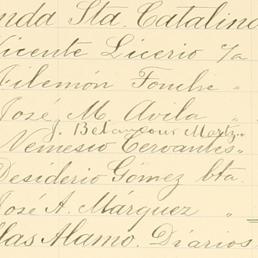 nda Sta. Catalina
Vicente Licerio 7a
Filemón Fonche "
José M. Avila "
J. Betancour Martz.
Nemesio Cervantes "
Desiderio Gómez bta.
José A. Márquez "
llas Alamo. Diarios